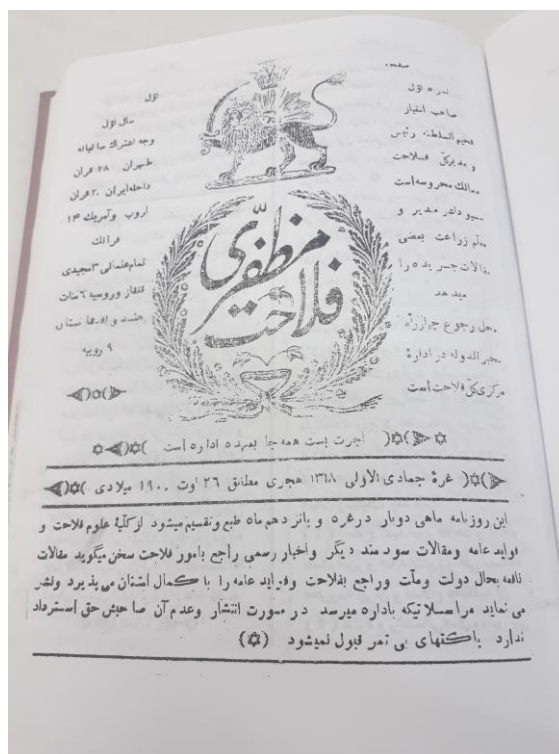 صفحه
نمره اول
صاحب امتیاز
فخیم السلطنه رئیس
و مدیر کل فلاحت
ممالک محروسه است
مدیر و
معلم زراعت بعضی
مقالات جریده را
میدهد
محل رجوع
مخبرالدوله در ادارهٔ
مرکزی کل فلاحت است
اول
سال اول
وجه اشتراک سالیانه
طهران ۲۸ قران
داخله ایران ۳۰ قران
اروپ و آمریک ۱۴
فرانک
تمام عثمانی ۳ مجیدی
قفقاز و روسیه ۶ منات
هند و افغانستان
۹ روپیه
فلاحت مظفری
اجرت پست همه جا بعهده اداره است
غرهٔ جمادی الاولی ۱۳۱۸ هجری مطابق ۲۶ اوت ۱۹۰۰ میلادی
این روزنامه ماهی دوبار در غره و پانزدهم ماه طبع و تقسیم میشود از کلیهٔ علوم فلاحت و
فواید عامه و مقالات سودمند دیگر و اخبار رسمی راجع بامور فلاحت سخن میگوید مقالات
نافعه بحال دولت و ملت و راجع بفلاحت و فواید عامه را با کمال امتنان می پذیرد و نشر
می نماید مراسلاتیکه باداره میرسد در صورت انتشار و عدم آن صاحبش حق استرداد
ندارد پاکتهای بی تمر قبول نمیشود